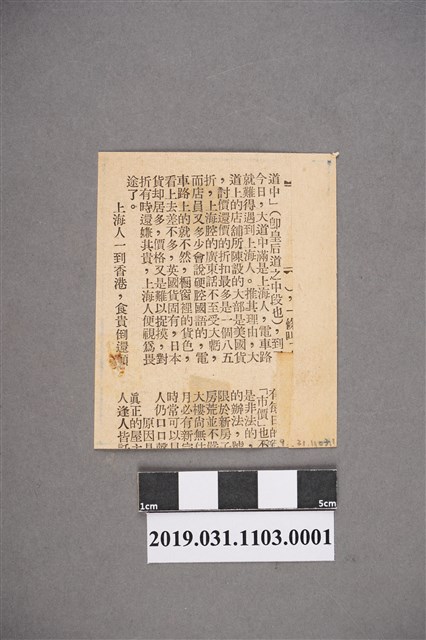 ），一條叫
道中」（卽皇后道之中段也），到
今日，大道中滿是上海人，電車路
就難得遇到上海人。推其理由，大
道上的店舖所陳設的大部是美國貨
，討價還價的折扣最多是一個八五
折，上海腔的廣東話不至受大虧，
而店員又多少會說硬腔國語的，電
車路上的就不然，橱窗裡的貨色，
看上去差不多，英國貨固有，日本
貨却居多，價格又是難以捉摸，對
折有時還嫌其貴，上海人便視爲畏
途了。
上海人一到香港，食貴倒還
有每日的
「市價」也不
是非法的，
的辦法，
限於新房子
房荒並不嚴
大樓尚無
月必有新
時常可以
人仍口口聲
原因
眞正的屋
人逢人皆
31.1103.1
1cm
5cm
2019.031.1103.0001